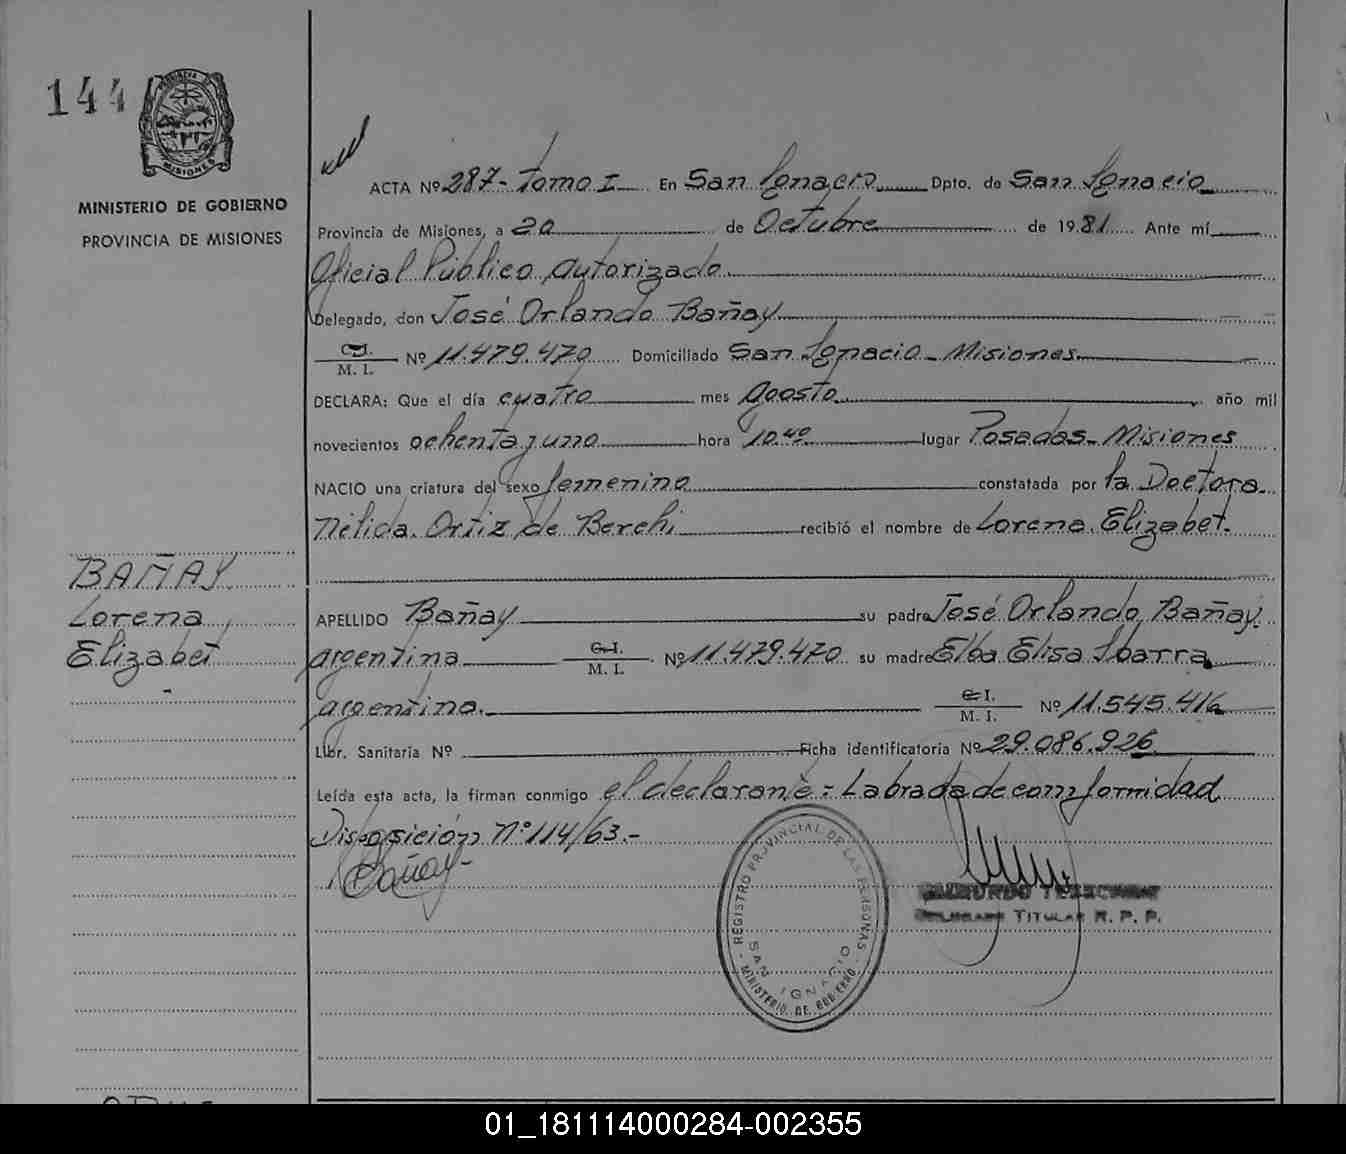 144
PROVINCIA DE
MISIONES
MINISTERIO DE GOBIERNO
PROVINCIA DE MISIONES
ACTA Nº 287- Tomo I En San Ignacio Dpto. de San Ignacio
Provincia de Misiones, a 20 de Octubre de 1981 Ante mí
Oficial Público Autorizado
Delegado, don José Orlando Bañay
C.I. M. I. Nº 11.479.470 Domiciliado San Ignacio - Misiones
DECLARA: Que el día cuatro mes agosto año mil
novecientos ochenta y uno hora 10.40 lugar Posadas - Misiones
NACIO una criatura del sexo femenino constatada por la Doctora
Nélida Ortiz de Berchi recibió el nombre de Lorena Elizabet.
BAÑAY
Lorena
Elizabet
APELLIDO Bañay su padre José Orlando Bañay.
argentina C.I. M. I. Nº 11.479.470 su madre Elba Elisa Ibarra
argentina. C.I. M. I. Nº 11.545.416
Libr. Sanitaria Nº Ficha identificatoria Nº 29.086.926
Leída esta acta, la firman conmigo el declarante: Labrada de conformidad
Disposición Nº 114/63.-
Bañay
REGISTRO PROVINCIAL DE LAS PERSONAS
SAN IGNACIO
MINISTERIO DE GOBIERNO
TITULAR R. P. P.
01_181114000284-002355